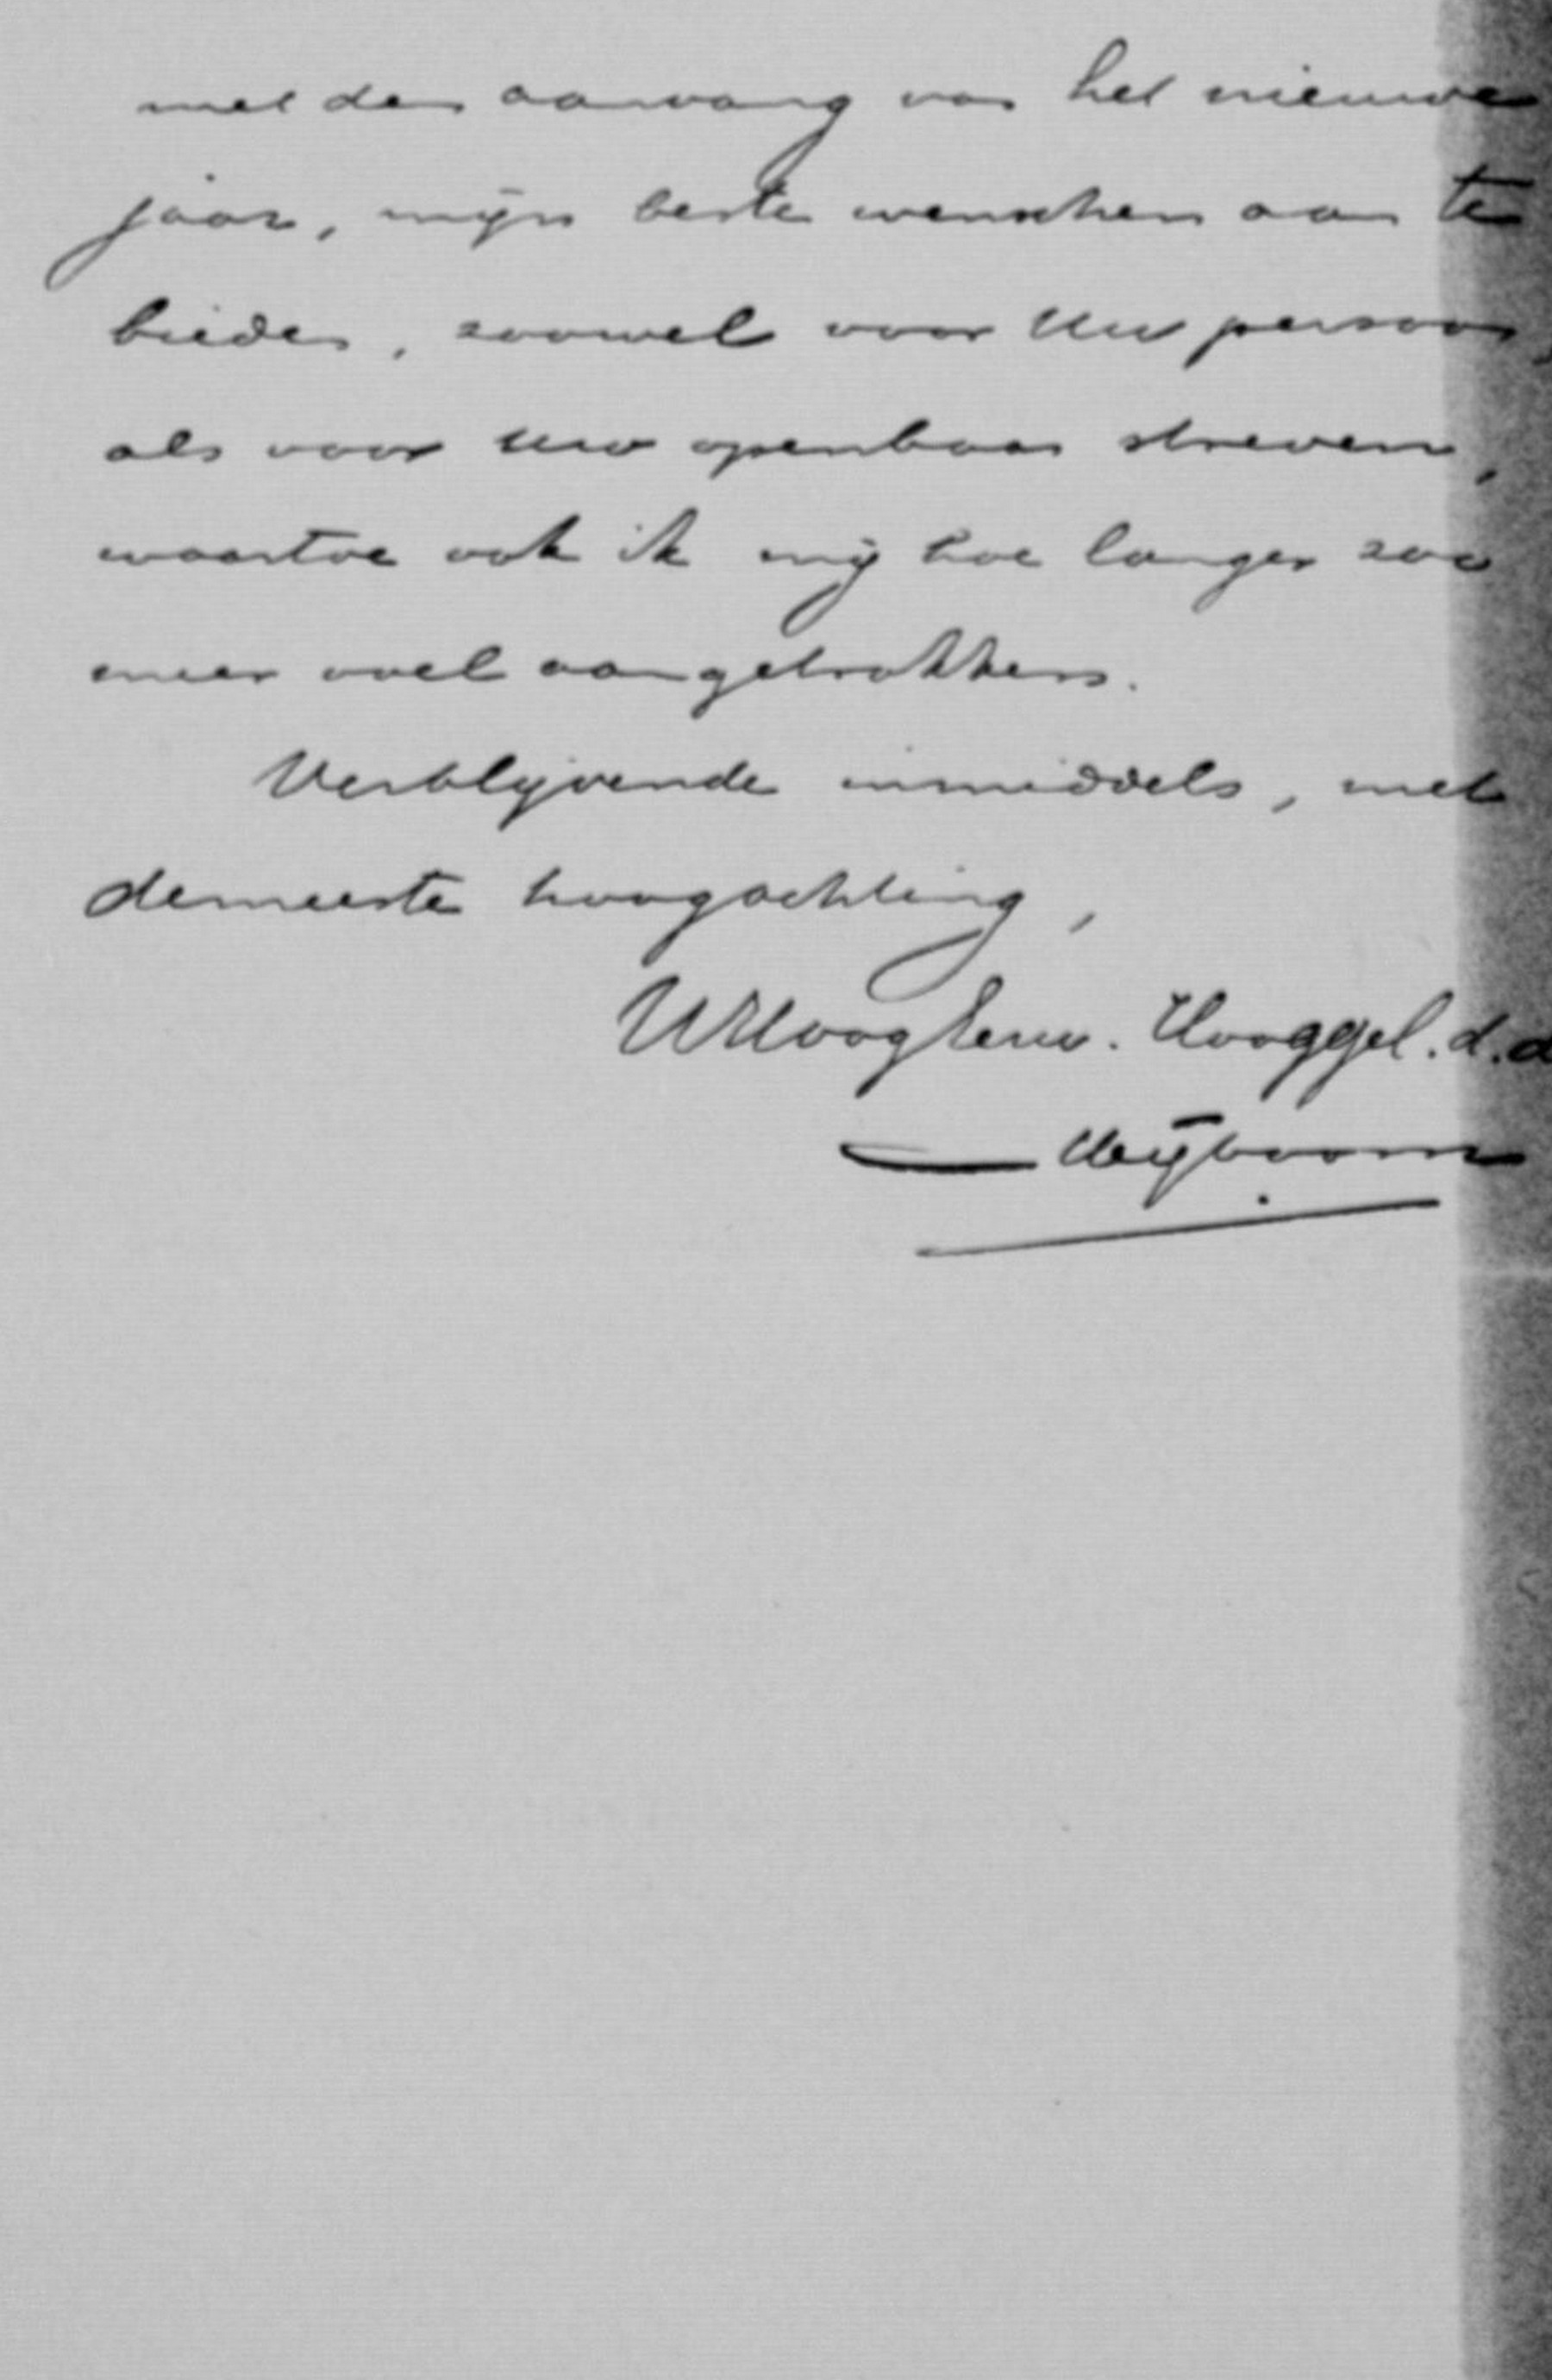 met den aanvang van het nieuwe
jaar, mijn beste wenschen aan te
bieden, zoowel voor Uw persoon,
als voor Uw openbaar streven,
waartoe ook ik mij hoe langer zoo
meer voel aangetrokken.
Verblijvende inmiddels, met
demeeste hoogachting,
UHoogEerw. Hooggel. d.d
Meijboom